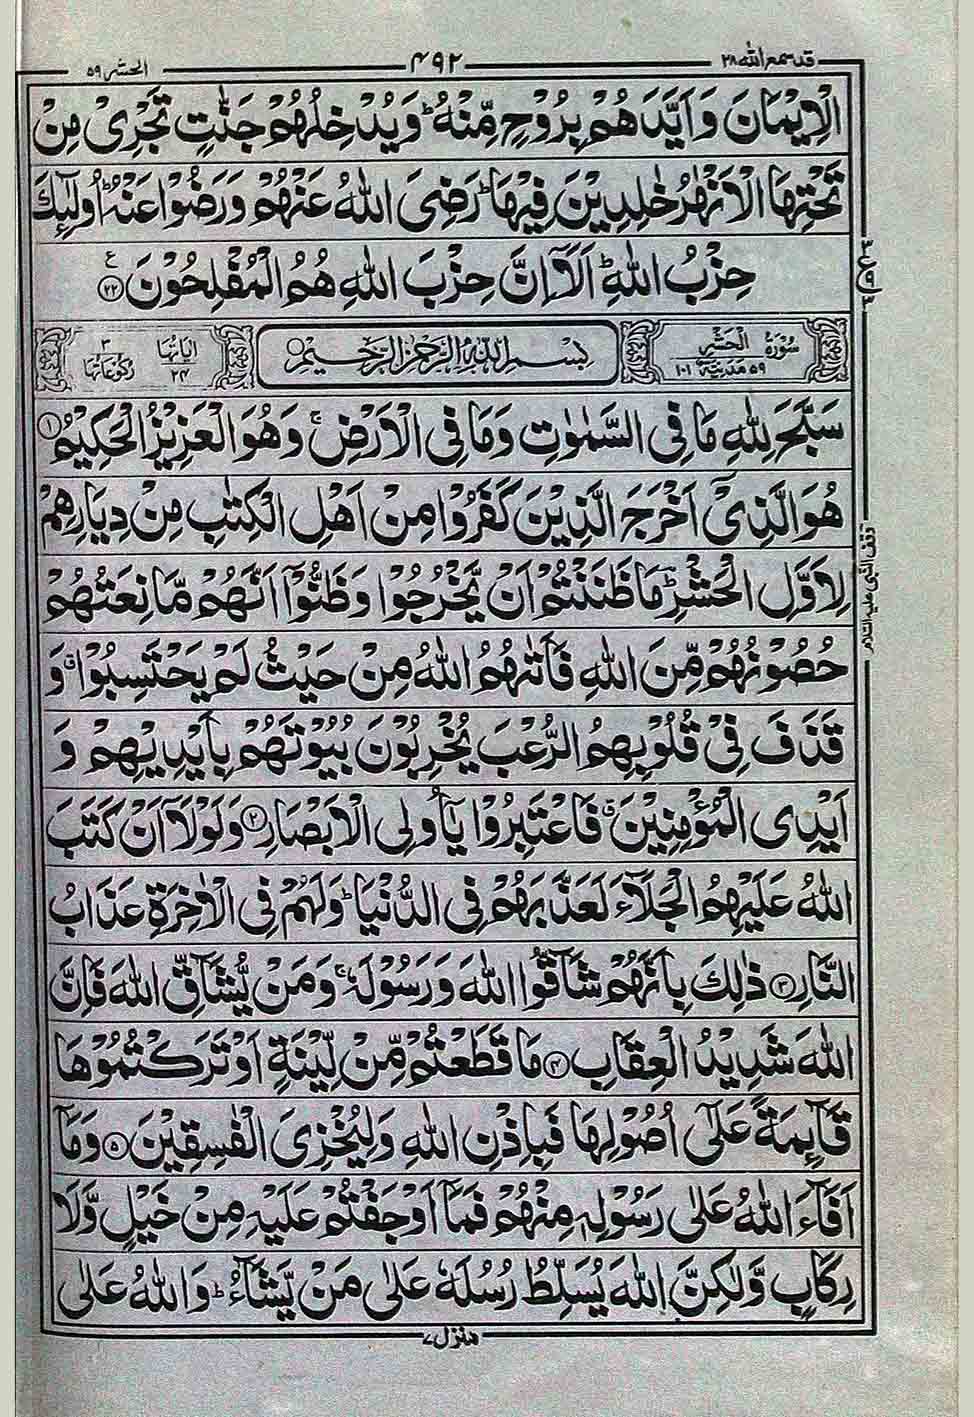 قد سمع الله ۲۸ ۴۹۲ الحشر ۵۹
الْاِیْمَانَ وَاَیَّدَهُمْ بِرُوْحٍ مِّنْهُ ؕ وَیُدْخِلُهُمْ جَنّٰتٍ تَجْرِیْ مِنْ
تَحْتِهَا الْاَنْهٰرُ خٰلِدِیْنَ فِیْهَا ؕ رَضِیَ اللّٰهُ عَنْهُمْ وَرَضُوْا عَنْهُ ؕ اُولٰٓئِكَ
حِزْبُ اللّٰهِ ؕ اَلَاۤ اِنَّ حِزْبَ اللّٰهِ هُمُ الْمُفْلِحُوْنَ ۲۲ ع
۳ ع ۹ ۳
سُوْرَةُ الْحَشْرِ ۵۹ مَدَنِیَّةٌ ۱۰۱
بِسْمِ اللّٰهِ الرَّحْمٰنِ الرَّحِیْمِ
اٰیَاتُهَا ۲۴ رُكُوْعَاتُهَا ۳
سَبَّحَ لِلّٰهِ مَا فِی السَّمٰوٰتِ وَمَا فِی الْاَرْضِ ۚ وَهُوَ الْعَزِیْزُ الْحَكِیْمُ ۱
هُوَ الَّذِیْۤ اَخْرَجَ الَّذِیْنَ كَفَرُوْا مِنْ اَهْلِ الْكِتٰبِ مِنْ دِیَارِهِمْ
وقف النبي عليه السلام
لِاَوَّلِ الْحَشْرِ ؔؕ مَا ظَنَنْتُمْ اَنْ یَّخْرُجُوْا وَظَنُّوْۤا اَنَّهُمْ مَّانِعَتُهُمْ
حُصُوْنُهُمْ مِّنَ اللّٰهِ فَاَتٰىهُمُ اللّٰهُ مِنْ حَیْثُ لَمْ یَحْتَسِبُوْا ۗ وَ
قَذَفَ فِیْ قُلُوْبِهِمُ الرُّعْبَ یُخْرِبُوْنَ بُیُوْتَهُمْ بِاَیْدِیْهِمْ وَ
اَیْدِی الْمُؤْمِنِیْنَ ۗ فَاعْتَبِرُوْا یٰۤاُولِی الْاَبْصَارِ ۲ وَلَوْلَاۤ اَنْ كَتَبَ
اللّٰهُ عَلَیْهِمُ الْجَلَآءَ لَعَذَّبَهُمْ فِی الدُّنْیَا ؕ وَلَهُمْ فِی الْاٰخِرَةِ عَذَابُ
النَّارِ ۳ ذٰلِكَ بِاَنَّهُمْ شَآقُّوا اللّٰهَ وَرَسُوْلَهٗ ۚ وَمَنْ یُّشَآقِّ اللّٰهَ فَاِنَّ
اللّٰهَ شَدِیْدُ الْعِقَابِ ۴ مَا قَطَعْتُمْ مِّنْ لِّیْنَةٍ اَوْ تَرَكْتُمُوْهَا
قَآئِمَةً عَلٰۤی اُصُوْلِهَا فَبِاِذْنِ اللّٰهِ وَلِیُخْزِیَ الْفٰسِقِیْنَ ۵ وَمَاۤ
اَفَآءَ اللّٰهُ عَلٰی رَسُوْلِهٖ مِنْهُمْ فَمَاۤ اَوْجَفْتُمْ عَلَیْهِ مِنْ خَیْلٍ وَّلَا
رِكَابٍ وَّلٰكِنَّ اللّٰهَ یُسَلِّطُ رُسُلَهٗ عَلٰی مَنْ یَّشَآءُ ؕ وَاللّٰهُ عَلٰی
منزل ۷